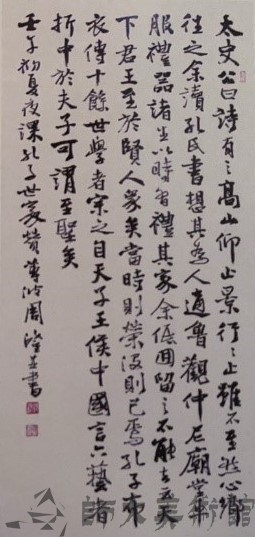 太史公曰詩有之高山仰止景行行止雖不至然心鄉
往之余讀孔氏書想其為人適魯觀仲尼廟堂車
服禮器諸生以時習禮其家余低回留之不能去云天
下君王至於賢人眾矣當時則榮沒則已焉孔子布
衣傳十餘世學者宗之自天子王侯中國言六藝者
折中於夫子可謂至聖矣
壬午初夏夜課孔子世家贊 周 書
師東美術館